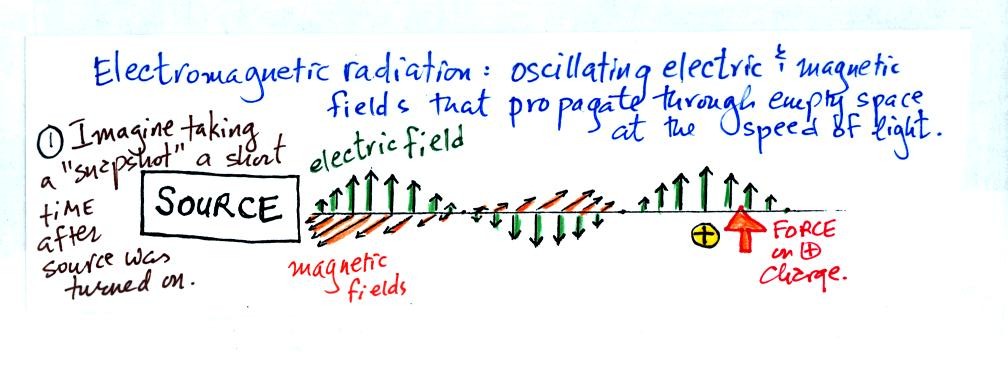 Electromagnetic radiation: oscillating electric & magnetic
fields that propagate through empty space
at the speed of light.
① Imagine taking
a "snapshot" a short
time
after
source was
turned on.
electric field
SOURCE
magnetic
fields
+
FORCE
on ⊕
charge.